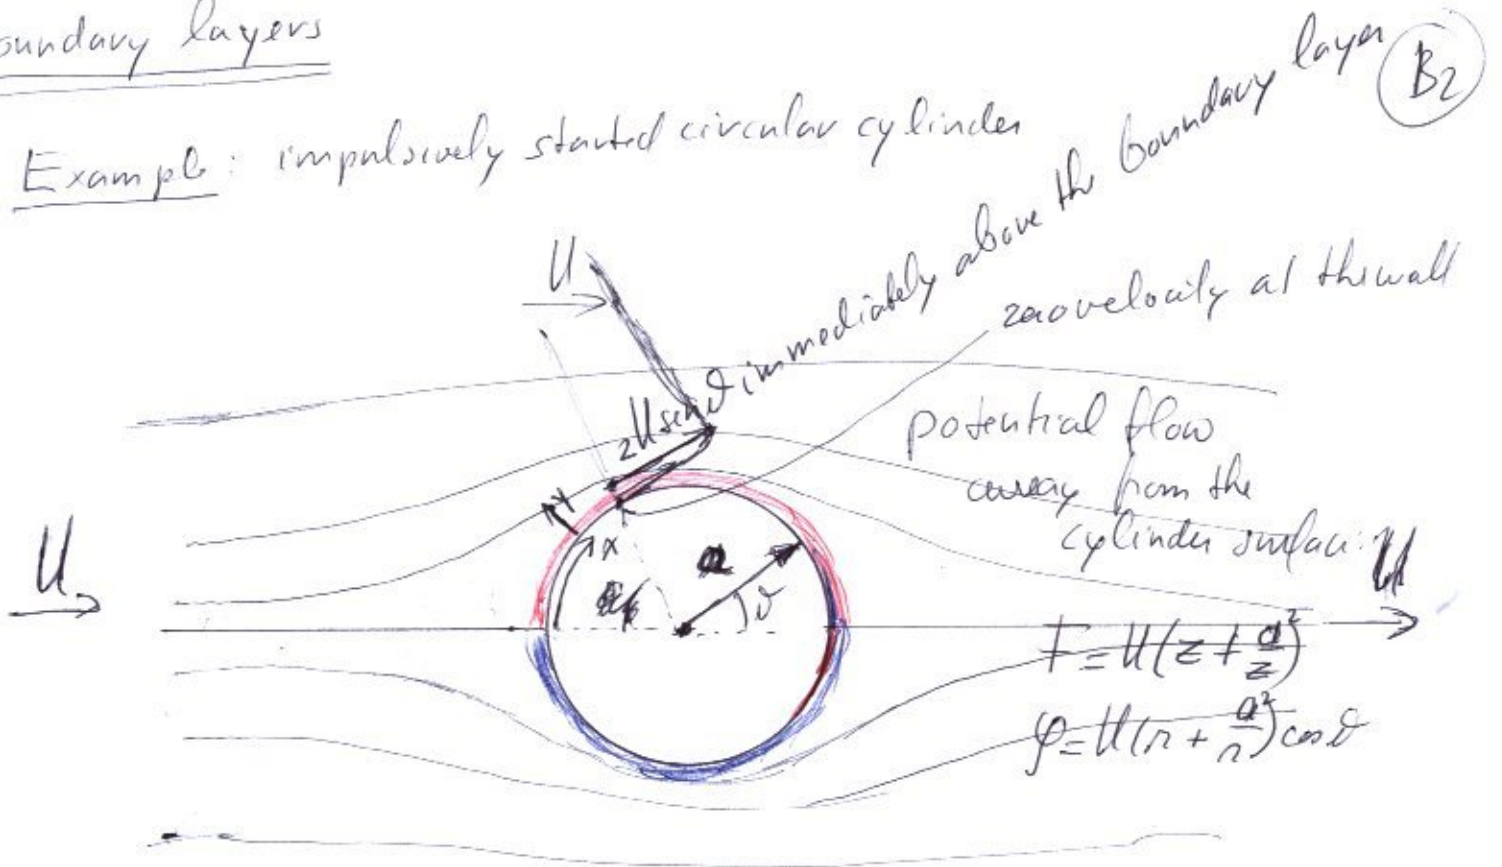 oundary layers
B2
Example: impulsively started circular cylinder
U
2U sin ϑ immediately above the boundary layer
zero velocity at the wall
potential flow
away from the
cylinder surface:
U
U
y
x
a
ϑ
F = U(z + a²/z)
φ = U(r + a²/r) cos ϑ